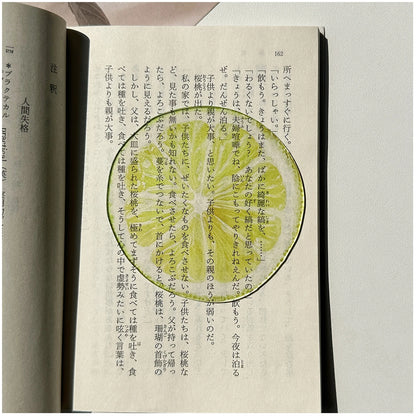 162
所へまっすぐに行く。
「いらっしゃい。」
「飲もう。きょうはまた、ばかに綺麗な縞を、……」
「わるくないでしょう？あなたの好く縞だと思っていたの。」
「きょうは、夫婦喧嘩でね、陰にこもってやりきれねえんだ。飲もう。今夜は泊る
ぜ。だんぜん泊る。」
子供より親が大事、と思いたい。子供よりも、その親のほうが弱いのだ。
桜桃が出た。
私の家では、子供たちに、ぜいたくなものを食べさせない。子供たちは、桜桃な
ど、見た事も無いかも知れない。食べさせたら、よろこぶだろう。父が持って帰っ
たら、よろこぶだろう。蔓を糸でつないで、首にかけると、桜桃は、珊瑚の首飾の
ように見えるだろう。
しかし、父は、大皿に盛られた桜桃を、極めてまずそうに食べては種を吐き、食
べては種を吐き、食べては種を吐き、そうして心の中で虚勢みたいに呟く言葉は、
子供よりも親が大事。
注釈
人間失格
＊プラクテカル